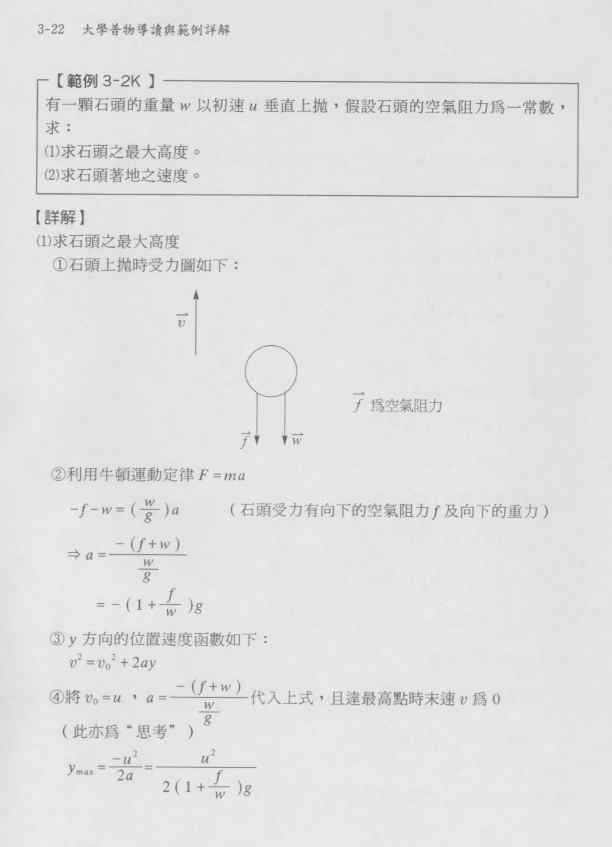 3-22 大學普物導讀與範例詳解
【範例 3-2K】
有一顆石頭的重量 w 以初速 u 垂直上拋，假設石頭的空氣阻力為一常數，
求：
⑴求石頭之最大高度。
⑵求石頭著地之速度。
【詳解】
⑴求石頭之最大高度
①石頭上拋時受力圖如下：
v⃗
f⃗ 為空氣阻力
f⃗ w⃗
②利用牛頓運動定律 F = ma
-f - w = (w/g)a （石頭受力有向下的空氣阻力 f 及向下的重力）
⇒ a = -(f+w) / (w/g)
= -(1 + f/w)g
③ y 方向的位置速度函數如下：
v² = v₀² + 2ay
④將 v₀ = u ， a = -(f+w) / (w/g) 代入上式，且達最高點時末速 v 為 0
（此亦為“思考”）
y_max = -u²/2a = u² / 2(1 + f/w)g